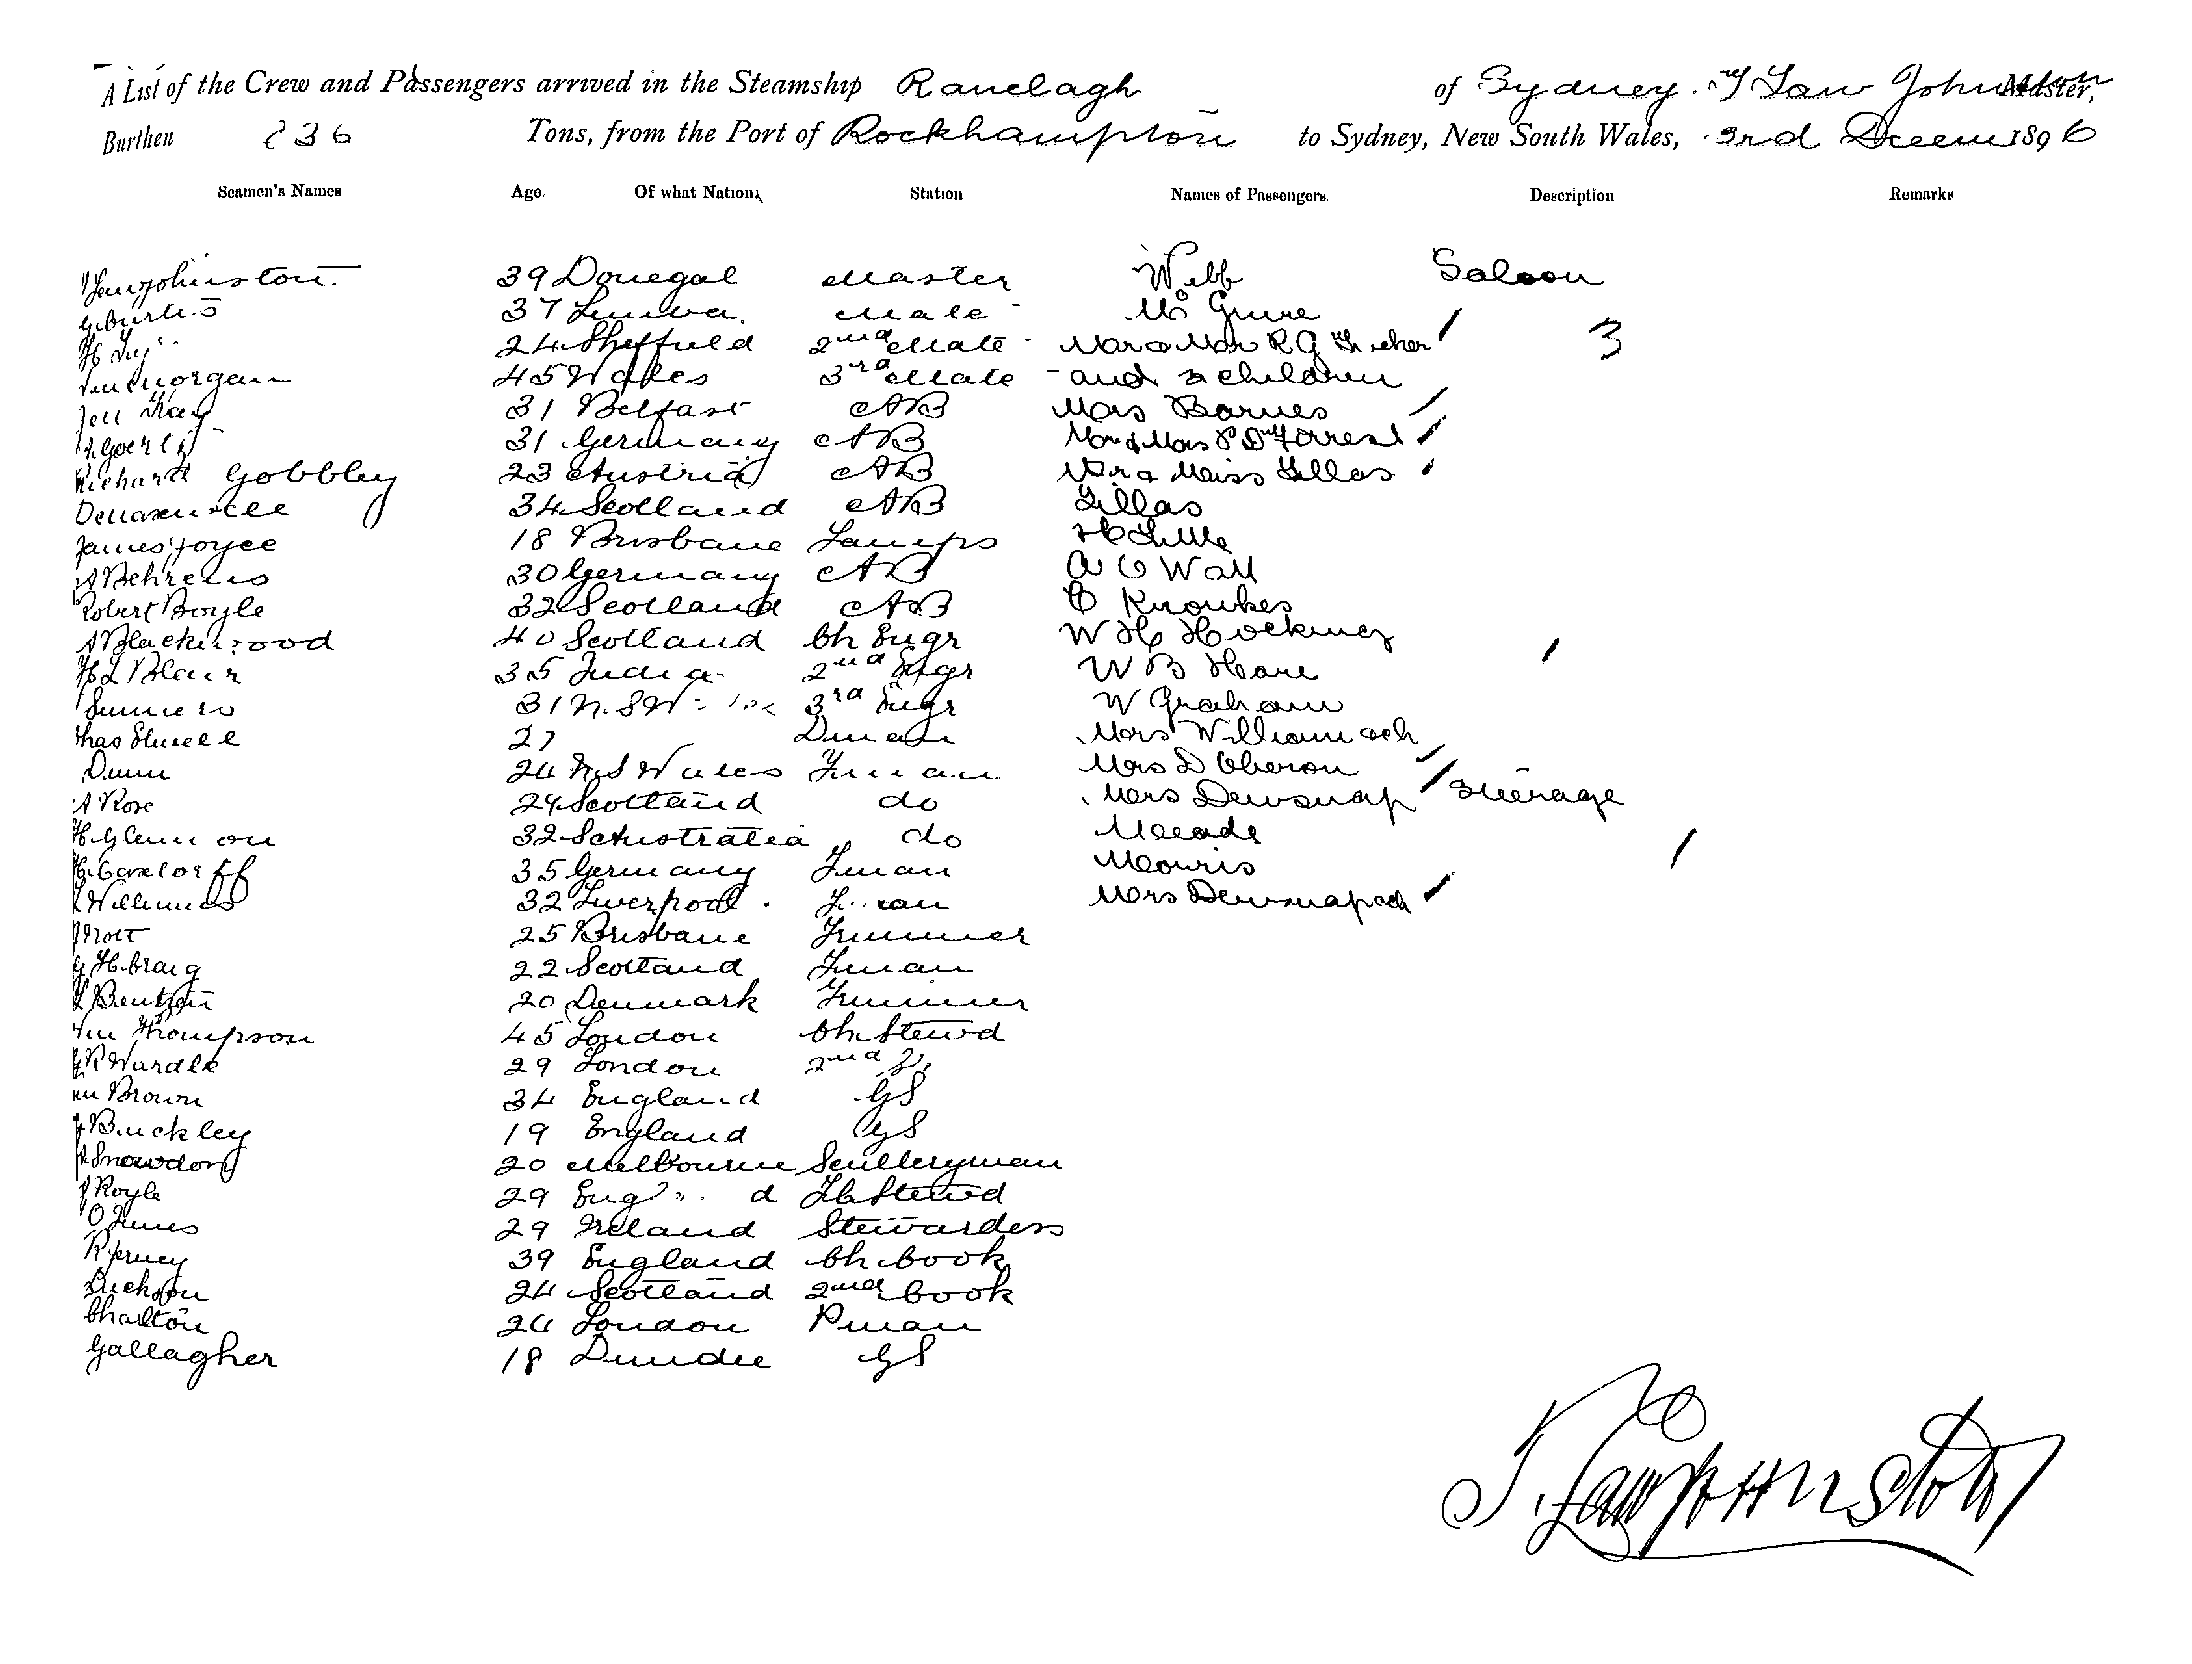 A List of the Crew and Passengers arrived in the Steamship Ranelagh of Sydney. T Law Johnston Master,
Burthen 836 Tons, from the Port of Rockhampton to Sydney, New South Wales, 3rd Decem 1896
Seamen's Names Age. Of what Nation. Station Names of Passengers. Description Remarks
T Law Johnston. 39 Donegal Master Webb Saloon
G. Curtis 37 Mate
24 Sheffield 2nd Mate Mr & Mrs R G 3
Wm Morgan 45 Wales 3rd Mate and 2 children
31 Belfast AB Mrs Barnes
31 Germany AB Mr & Mrs Forrest
Richard Gobbley 23 Austria AB Mr & Miss Lillas
34 Scotland AB Lillas
James Joyce 18 Brisbane Lamps
A Behrens 30 Germany AB A C Wall
Robert Boyle 32 Scotland AB C Knowkes
A Blackwood 40 Scotland Ch Engr W H Hocking
H L Blair 35 India 2nd Engr W B Hare
Summers 31 N.S.W. 3rd Engr W Graham
27 Dman Mrs Williamson
Dunn 24 N S Wales Fman Mrs D Oberon
A Rose 24 Scotland do Mrs Dewsnap Steerage
H. Glennon 32 S Australia do Meeade
35 Germany Fman Mouris
Williams 32 Liverpool Fman Mrs Dewsnap
25 Brisbane Trimmer
H. Craig 22 Scotland Fman
20 Denmark Trimmer
Wm Thompson 45 London Ch. Stewd
R Wardle 29 London 2nd
Wm Brown 34 England GS
Buckley 19 England GS
Snowdon 20 Melbourne Sculleryman
J Royle 29 England Stewd
O 29 Ireland Stewardess
39 England Ch. Cook
Dickson 24 Scotland 2nd Cook
Charlton 24 London Pman
Gallagher 18 Dundee GS
T. Law Johnston